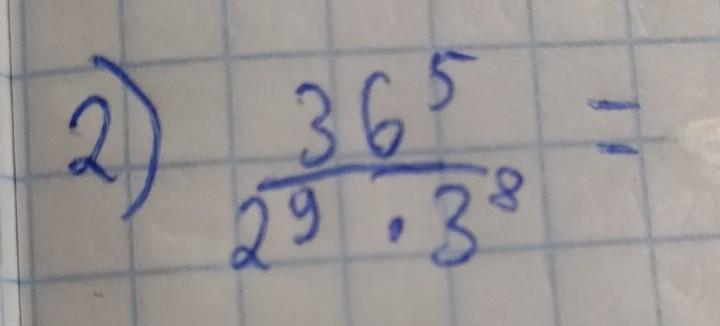 2) 36⁵ / 2⁹ · 3⁸ =